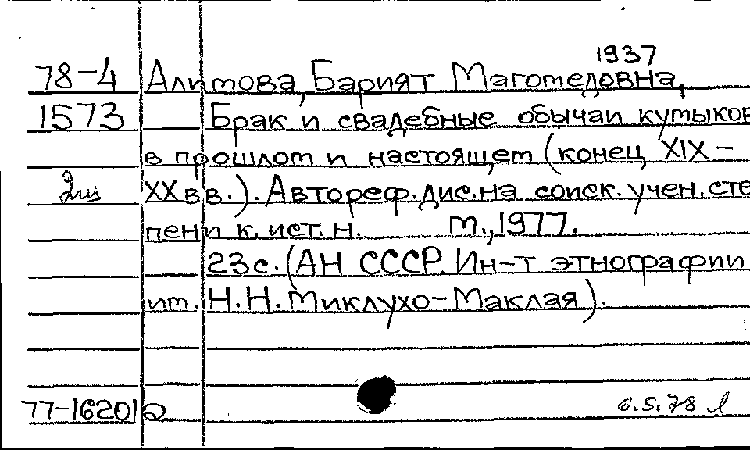 1937
78-4 Алимова, Барият Магомедовна,
1573 Брак и свадебные обычаи кумыков
в прошлом и настоящем (конец XIX -
XX вв.). Автореф. дис. на соиск. учен. сте
пени к. ист. н. М., 1977.
23 с. (АН СССР. Ин-т этнографии
им. Н. Н. Миклухо-Маклая).
77-16201а 6.5.78